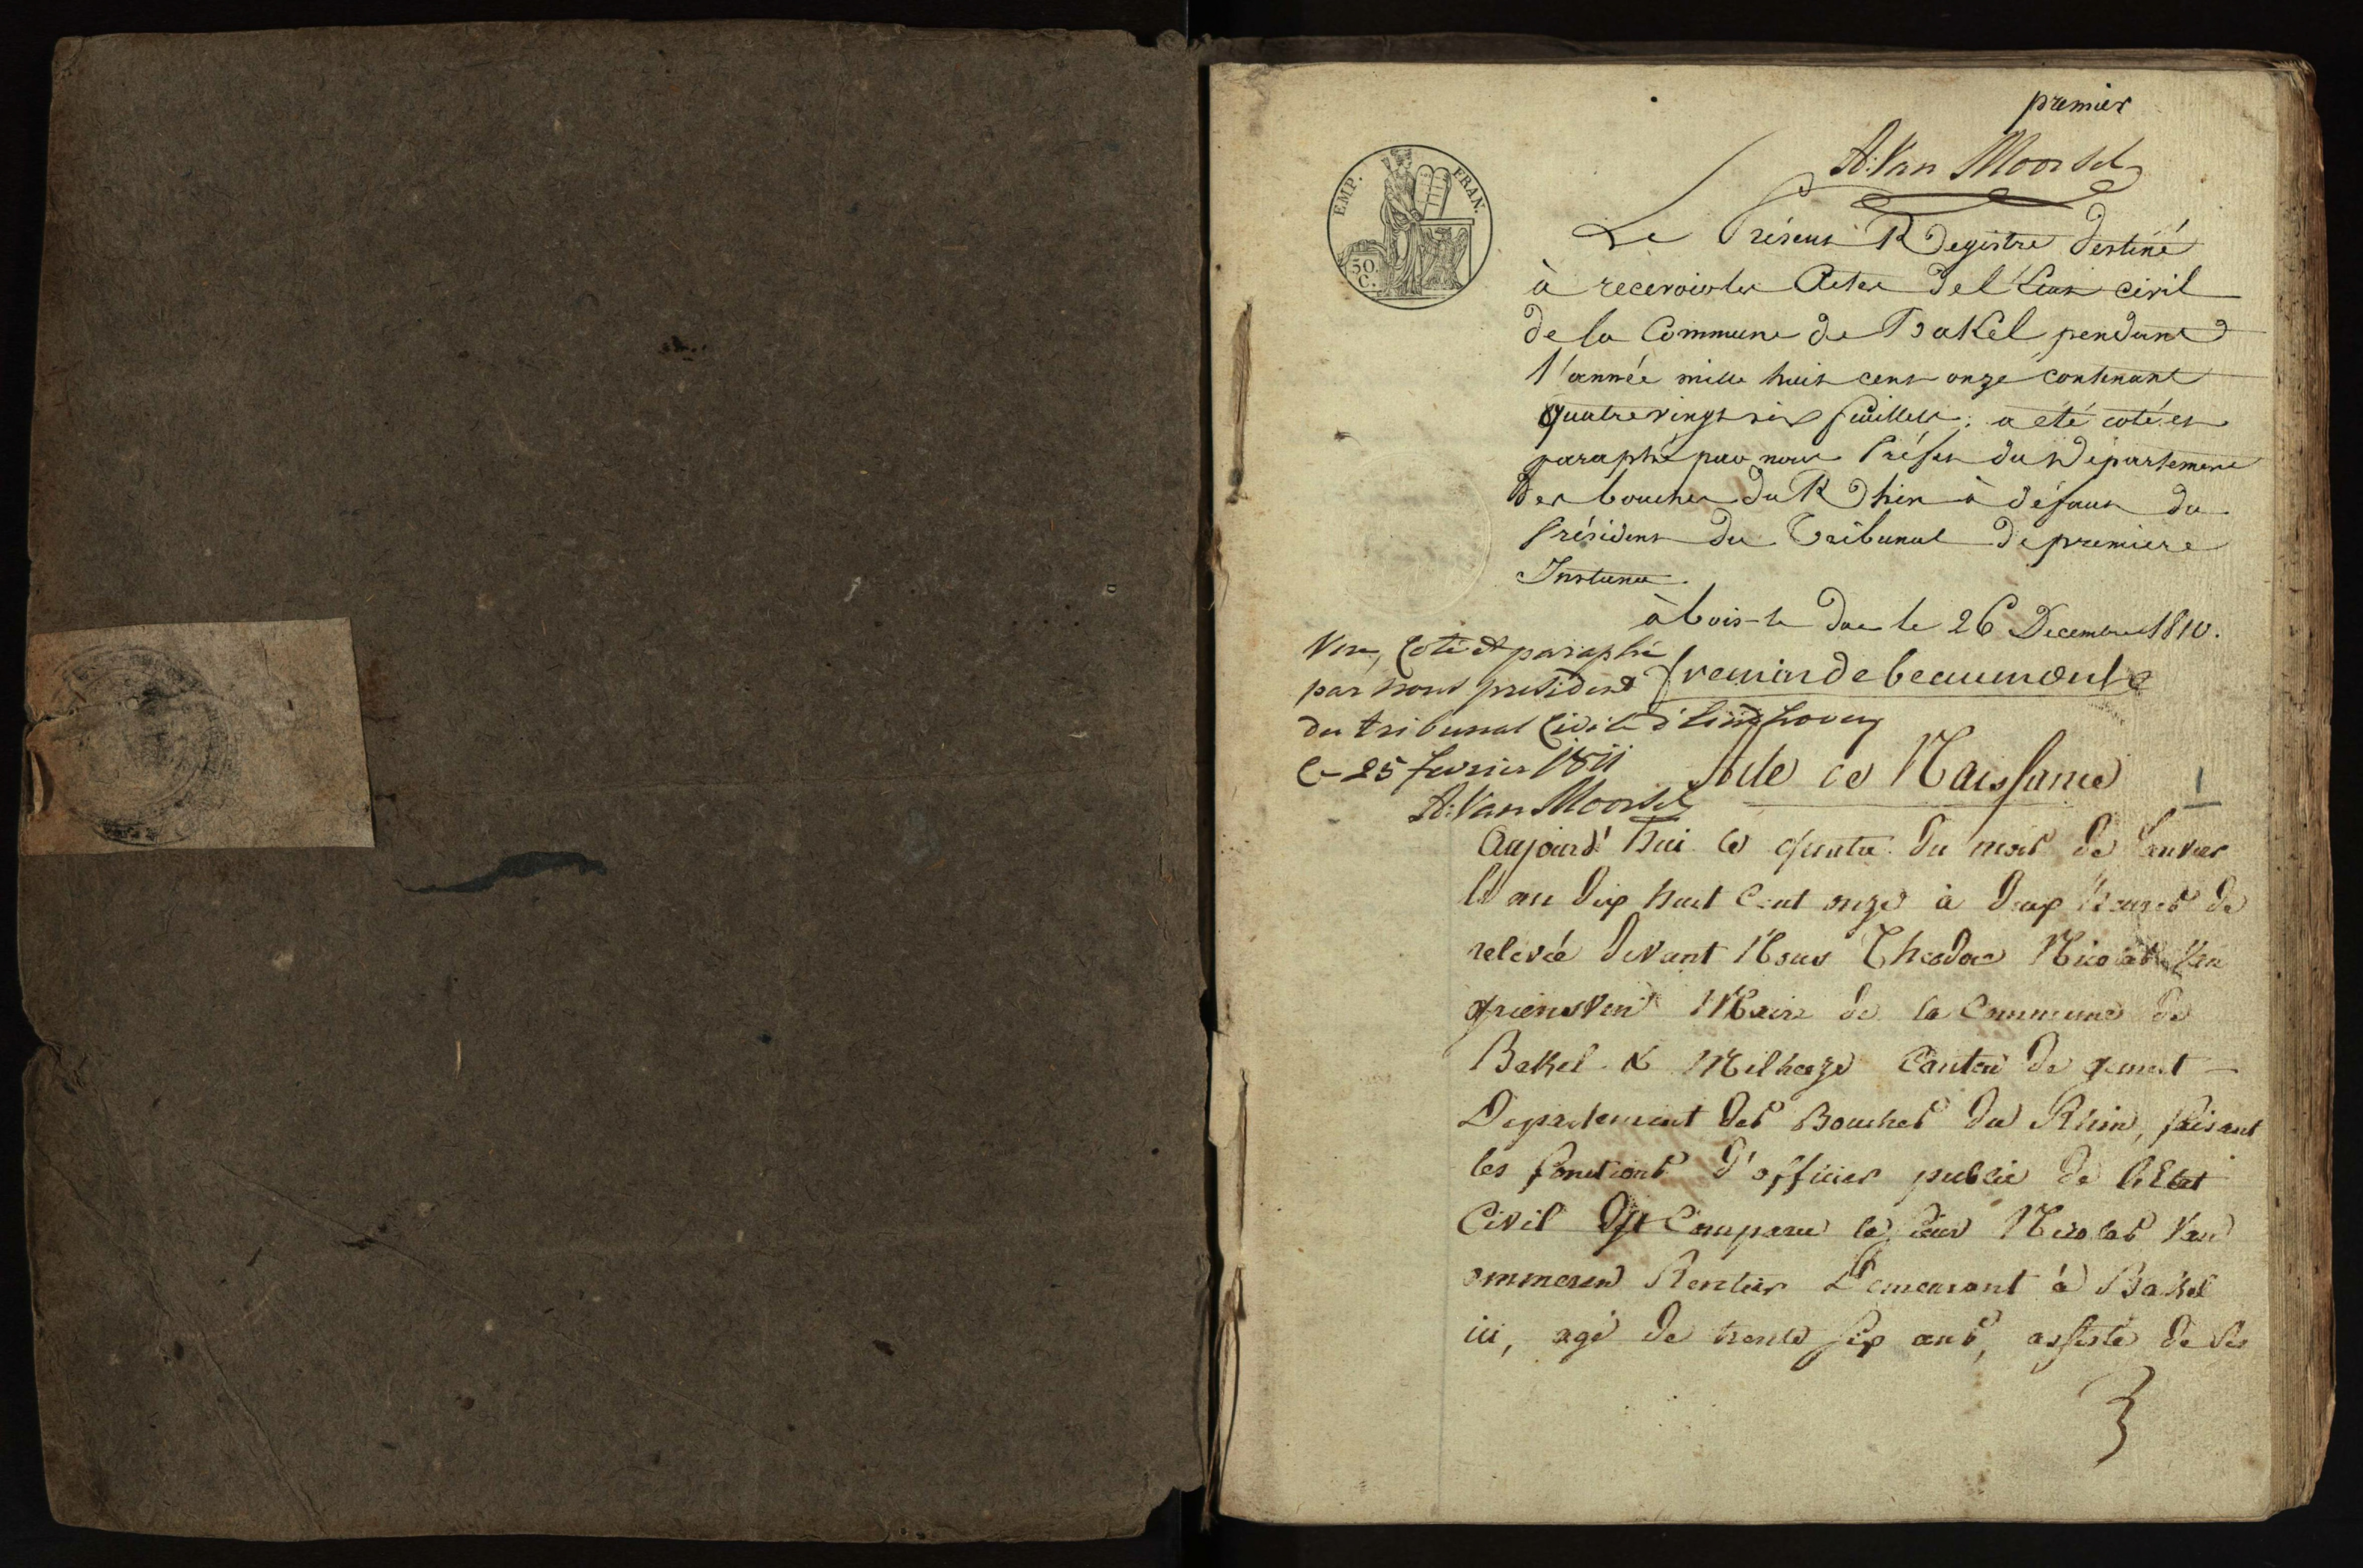 premier
A: Van Moorsel
EMP. FRAN.
50.
C.
Le Présent Registre destiné
à recevoir les Actes de l'Etat civil
de la Commune de Bakel pendant
l'année mille huit cent onze contenant
quatre vingt six feuillets; a été coté et
paraphé par nous Préfet du Département
des bouches du Rhin à défaut du
Président du Tribunal de premiere
Instance.
à bois-le duc le 26 Decembre 1810.
fremin de beaumont
Vu, Coté et paraphé
par nous president
du tribunal Civil d'Eindhoven
le 25 fevrier 1811
A: Van Moorsel
Acte de Naissance
1
Aujourd'hui le quatre du mois de Janvier
l'an dix huit Cent onze à deux heures de
relevée devant Nous Theodore Nicolas Van
Griensven Maire de la Commune de
Bakel & Milheeze Canton de gemert
Departement des Bouches du Rhin, faisant
les fonctions d'officier public de l'Etat
Civil Est Comparu le sieur Nicolas Van
ommeren Rentier Demeurant à Bakel
ici, agé de trente six ans, assisté de